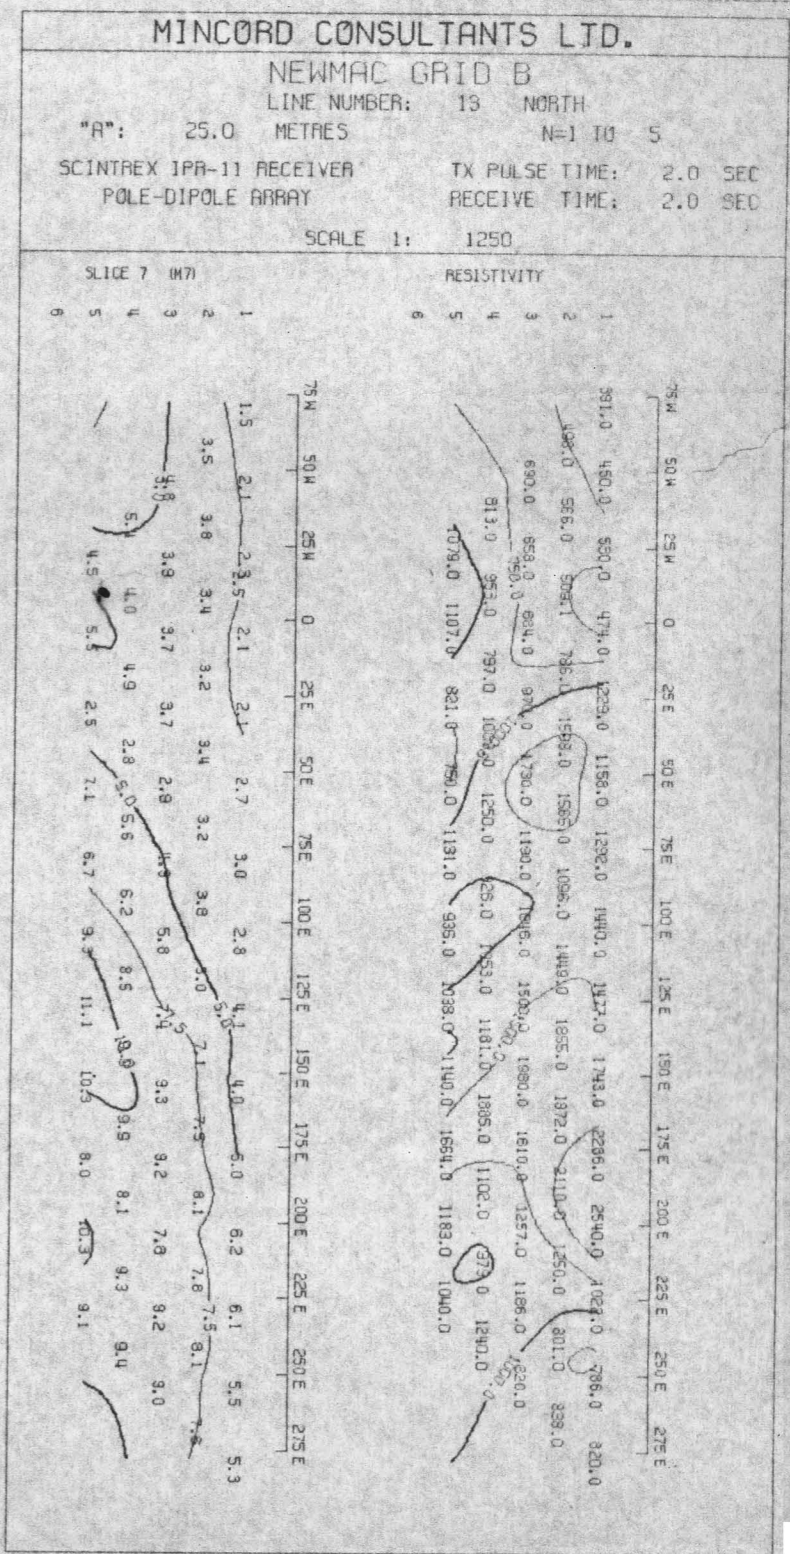 MINCORD CONSULTANTS LTD.
NEWMAC GRID B
LINE NUMBER: 13 NORTH
"A": 25.0 METRES N=1 TO 5
SCINTREX IPR-11 RECEIVER TX PULSE TIME: 2.0 SEC
POLE-DIPOLE ARRAY RECEIVE TIME: 2.0 SEC
SCALE 1: 1250
SLICE 7 (M7)
6 5 4 3 2 1
75 W 50 W 25 W 0 25 E 50 E 75 E 100 E 125 E 150 E 175 E 200 E 225 E 250 E 275 E
1.5 2.1 2.3 2.5 2.1 2.1 2.7 3.0 2.8 4.1 5.0 4.0 5.0 6.2 6.1 5.5 5.3
3.5 3.8 3.4 3.2 3.4 3.2 3.8 7.1 7.5 8.1 7.8 7.5 8.1
3.9 3.7 3.7 2.9 5.8 7.4 9.3 9.2 7.8 8.2 9.0
4.0 4.9 2.8 5.0 5.6 6.2 8.5 9.9 8.1 9.3 9.4
4.5 5.5 2.5 7.1 6.7 9.3 11.1 10.3 8.0 10.3 9.1
RESISTIVITY
6 5 4 3 2 1
75 W 50 W 25 W 0 25 E 50 E 75 E 100 E 125 E 150 E 175 E 200 E 225 E 250 E 275 E
391.0 460.0 550.0 474.0 1229.0 1158.0 1292.0 1440.0 1743.0 2540.0 786.0 820.0
498.0 1096.0 1449.0 1855.0 1872.0 2110.0 801.0 839.0
690.0 658.0 1730.0 1190.0 1980.0 1610.0 1257.0 1186.0
813.0 953.0 797.0 1250.0 1181.0 1885.0 1102.0 1240.0
1079.0 1107.0 821.0 750.0 1131.0 936.0 1038.0 1140.0 1664.0 1183.0 1040.0